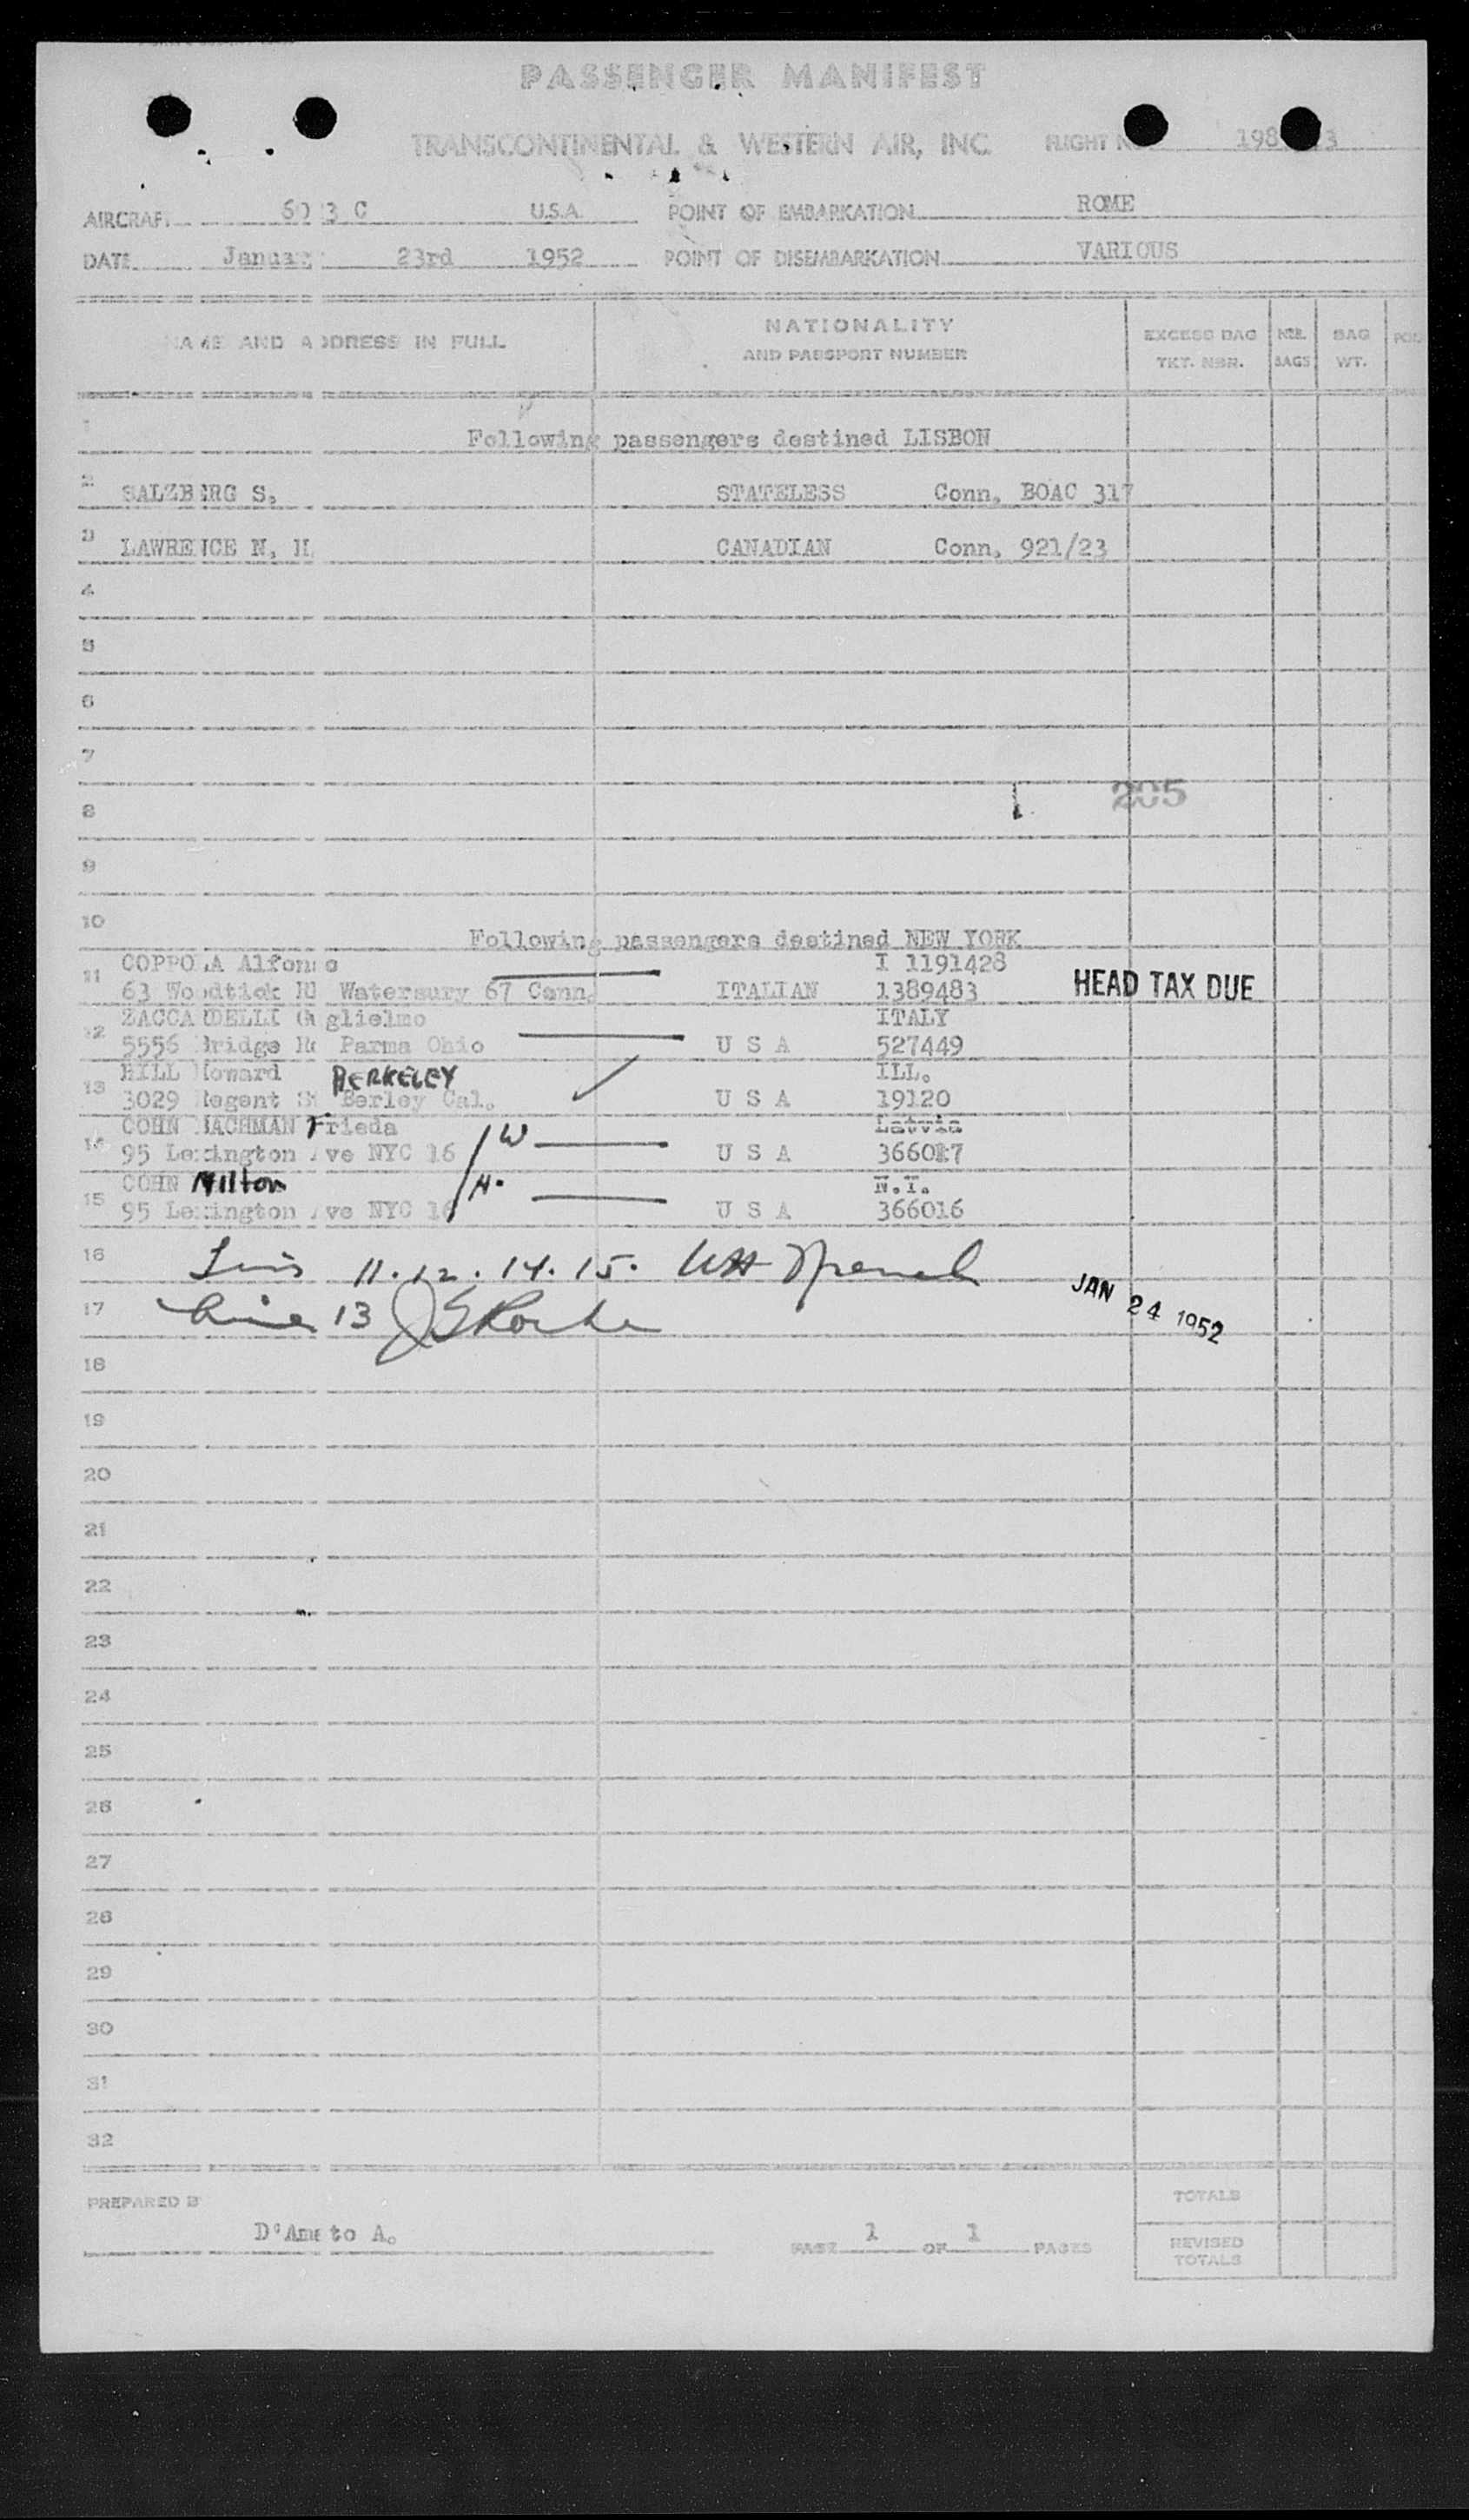 PASSENGER MANIFEST
TRANSCONTINENTAL & WESTERN AIR, INC. FLIGHT 198 3
AIRCRAF. 60 3 C U.S.A. POINT OF EMBARKATION ROME
DATE January 23rd 1952 POINT OF DISEMBARKATION VARIOUS
NAME AND ADDRESS IN FULL NATIONALITY AND PASSPORT NUMBER EXCESS BAG TKT. NBR. NBR. BAGS BAG WT.
1 Following passengers destined LISBON
2 SALZBERG S. STATELESS Conn. BOAC 317
3 LAWRENCE N. H. CANADIAN Conn. 921/23
4
5
6
7
205
8
9
10 Following passengers destined NEW YORK
COPPOLA Alfonso I 1191428
11 63 Woodtick Rd Watersury 67 Conn. ITALIAN 1389483 HEAD TAX DUE
ZACCARDELLI Guglielmo ITALY
12 5556 Bridge Rd Parma Ohio U S A 527449
HILL Howard BERKELEY ILL.
13 3029 Regent St Berley Cal. U S A 19120
COHN BACHMAN Frieda Latvia
14 95 Lexington Ave NYC 16 W U S A 366017
COHN Milton H. N.Y.
15 95 Lexington Ave NYC 16 U S A 366016
16 11. 12. 14. 15.
17 Line 13
JAN 24 1952
18
19
20
21
22
23
24
25
26
27
28
29
30
31
32
PREPARED B
D'Amato A. PAGE 1 OF 1 PAGES
TOTALS
REVISED TOTALS